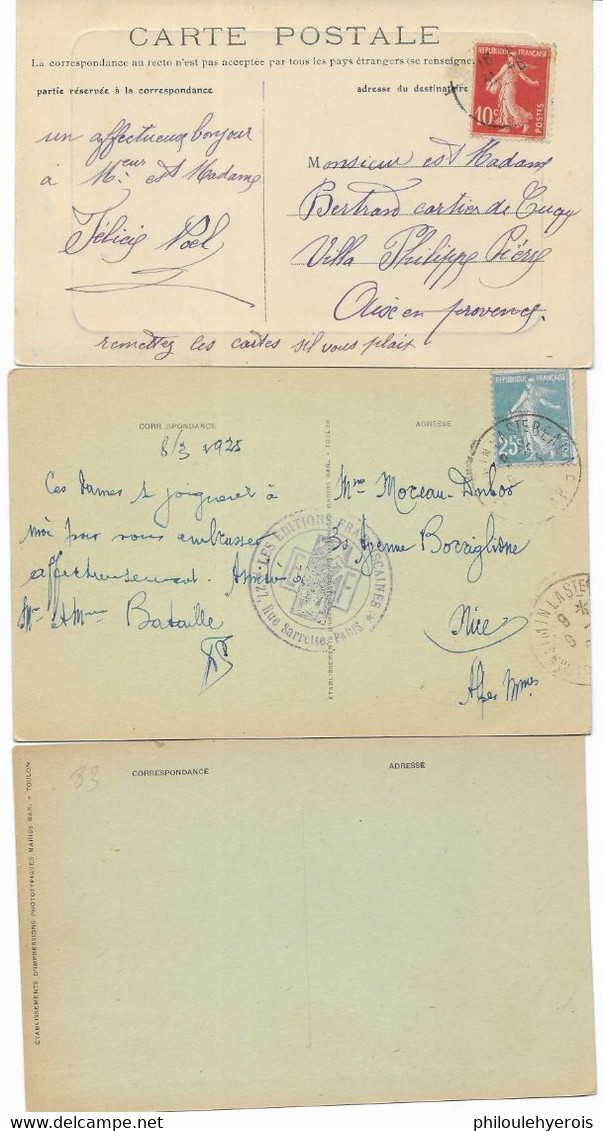 CARTE POSTALE
La correspondance au recto n'est pas acceptée par tous les pays étrangers (se renseigner
partie réservée à la correspondance
adresse du destinataire
RÉPUBLIQUE FRANÇAISE
10c
POSTES
un affectueux bonjour
à Mr eur est Madame
Félicie Noël
Monsieur est Madame
Bertrand cartier de Cugy
Villa Philippe Pierre
Aix en provence
remettez les cartes sil vous plait
CORRESPONDANCE
ADRESSE
RÉPUBLIQUE FRANÇAISE
25c
8/3 1925
Ces Dames se joignent à
moi pour vous embrasser
affectueusement.
Mr et Mme Bataille
Mme Moreau
Avenue
Nice
Alpes Mmes
LES EDITIONS FRANCISCAINES
27, Rue Sarrette, PARIS
MARIUS BAR. - TOULON
33
CORRESPONDANCE
ADRESSE
ÉTABLISSEMENTS D'IMPRESSIONS PHOTOTYPIQUES MARIUS BAR. - TOULON
philoulehyerois